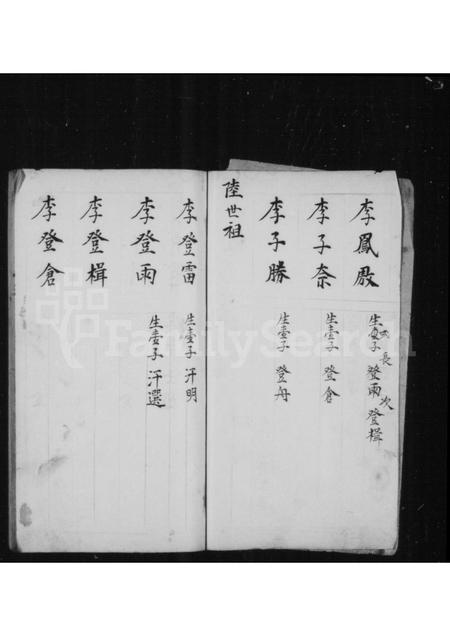 李鳳殿 生弍子 長登雨 次登楫
李子奈 生壹子 登倉
李子勝 生壹子 登舟
陸世祖
李登雷 生壹子 汗明
李登雨 生壹子 汗選
李登楫
李登倉
FamilySearch